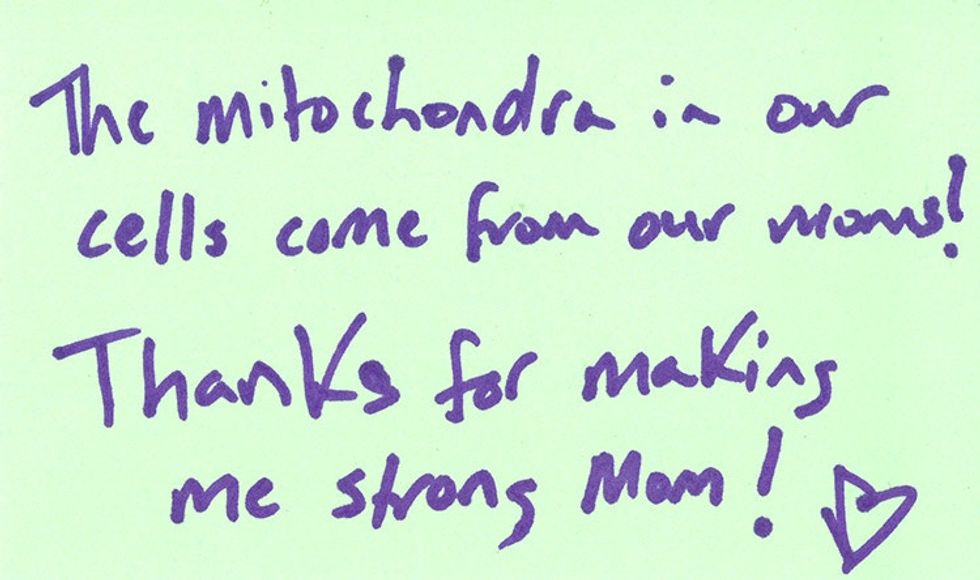 The mitochondra in our
cells come from our moms!
Thanks for making
me strong Mom!